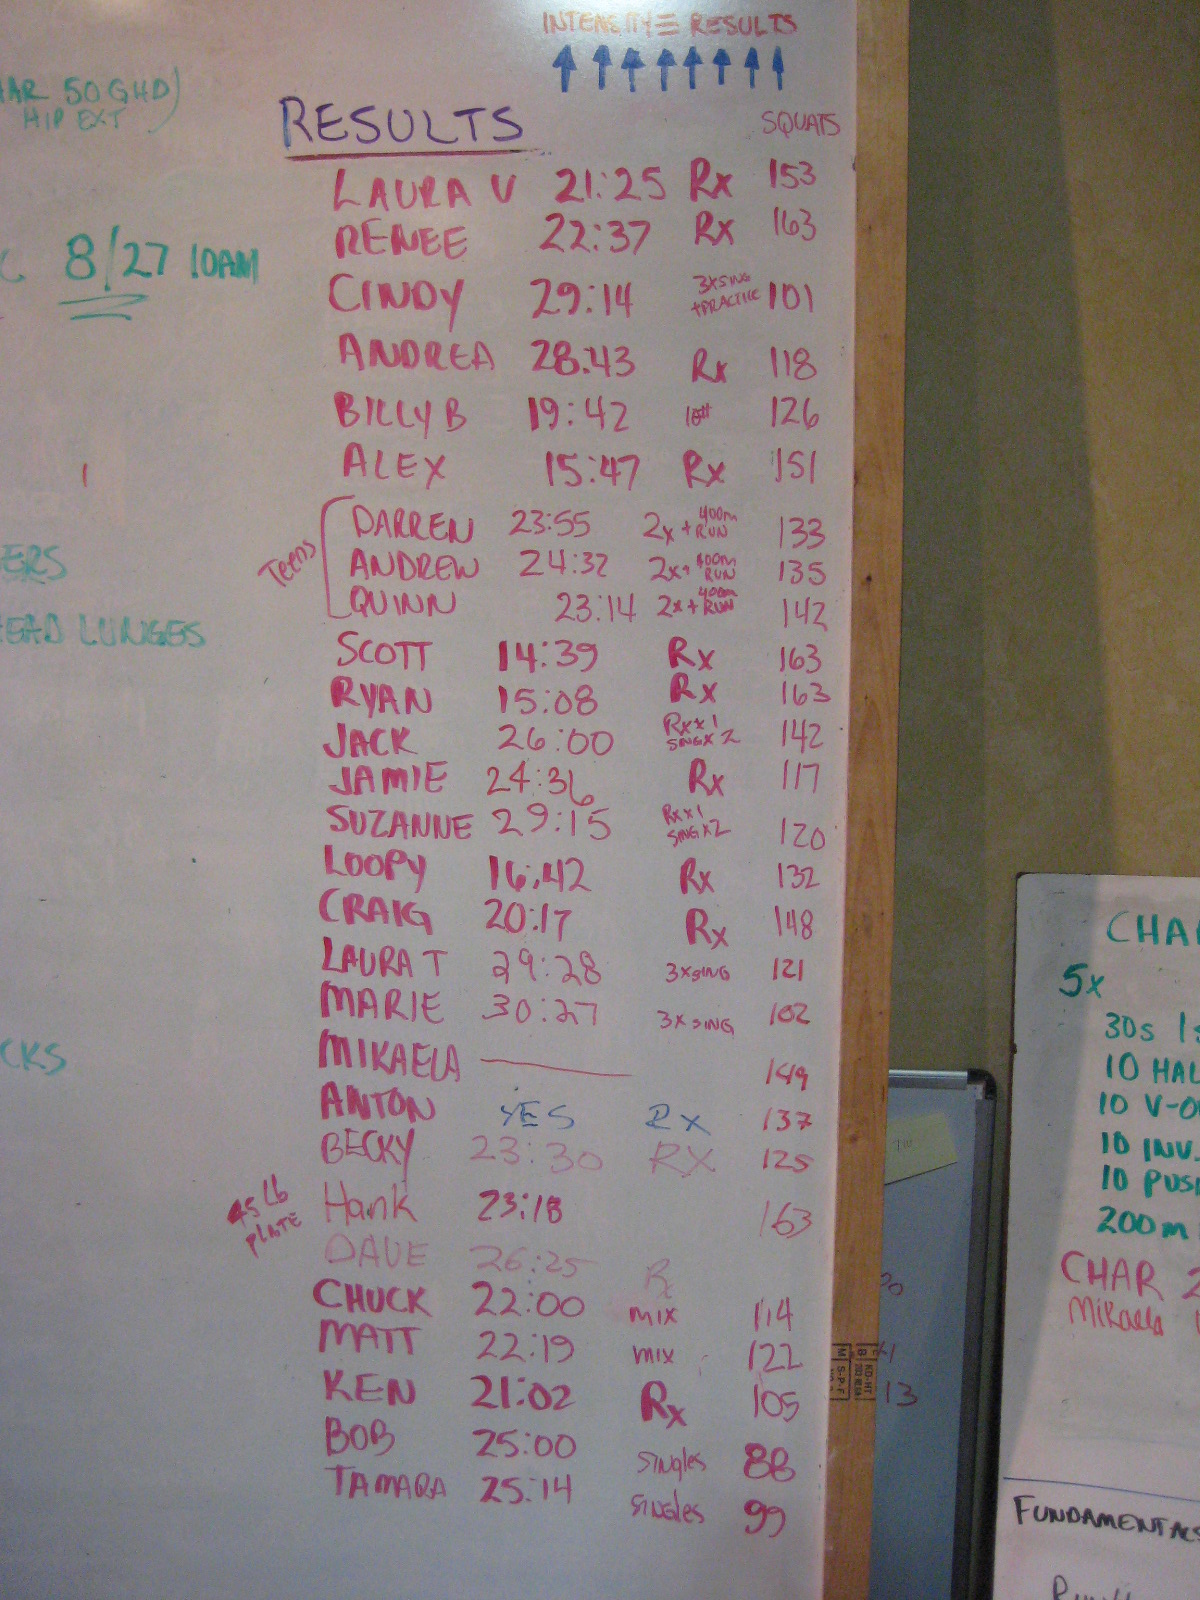 INTENSITY ≡ RESULTS
AR 50 GHD)
HIP EXT
RESULTS
SQUATS
LAURA V 21:25 Rx 153
RENEE 22:37 Rx 163
8/27 10AM
CINDY 29:14 3xSING +PRACTICE 101
ANDREA 28:43 Rx 118
BILLY B 19:42 10# 126
ALEX 15:47 Rx 151
Teens
DARREN 23:55 2x + 400m RUN 133
ANDREW 24:32 2x + 400m RUN 135
QUINN 23:14 2x + 400m RUN 142
ERS
EAD LUNGES
SCOTT 14:39 Rx 163
RYAN 15:08 Rx 163
JACK 26:00 Rx x 1 SING x 2 142
JAMIE 24:36 Rx 117
SUZANNE 29:15 Rx x 1 SING x 2 120
LOOPY 16:42 Rx 132
CRAIG 20:17 Rx 148
LAURA T 29:28 3xSING 121
MARIE 30:27 3x SING 102
CKS
MIKAELA — 149
ANTON YES Rx 137
BECKY 23:30 RX 125
45 lb plate
Hank 23:18 163
DAVE 26:25 Rx
CHUCK 22:00 mix 114
MATT 22:19 mix 122
KEN 21:02 Rx 105
BOB 25:00 SINgles 88
TAMARA 25:14 SINgles 99
CHA
5x
30s
10 HAL
10 V-O
10 INV.
10 PUS
200m
CHAR 2
Mikaela
13
S-P-F
KD-HT
FUNDAMENTALS